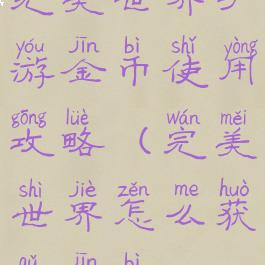 yóu jīn bì shǐ yòng
游金币使用
gōng lüè wán měi
攻略（完美
shì jiè zěn me huò
世界怎么获
jīn bì